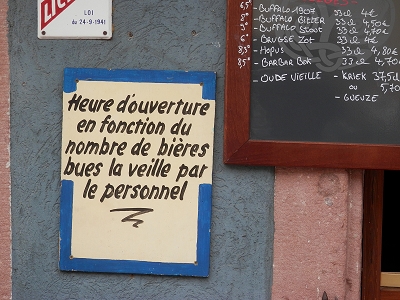 LOI
du 24-9-1941
Heure d'ouverture
en fonction du
nombre de bières
bues la veille par
le personnel
6,5° - BUFFALO 1907 33cl 4€
- BUFFALO BITTER 33cl 4,50€
- BUFFALO STOUT 33cl 4,70€
6° - BRUGSE ZOT 33cl 4€
8,5° - HOPUS 33cl 4,80€
8° - BARBAR BOK 33cl 4,70€
- OUDE VIEILLE - KRIEK 37,5cl
ou 5,70
- GUEUZE